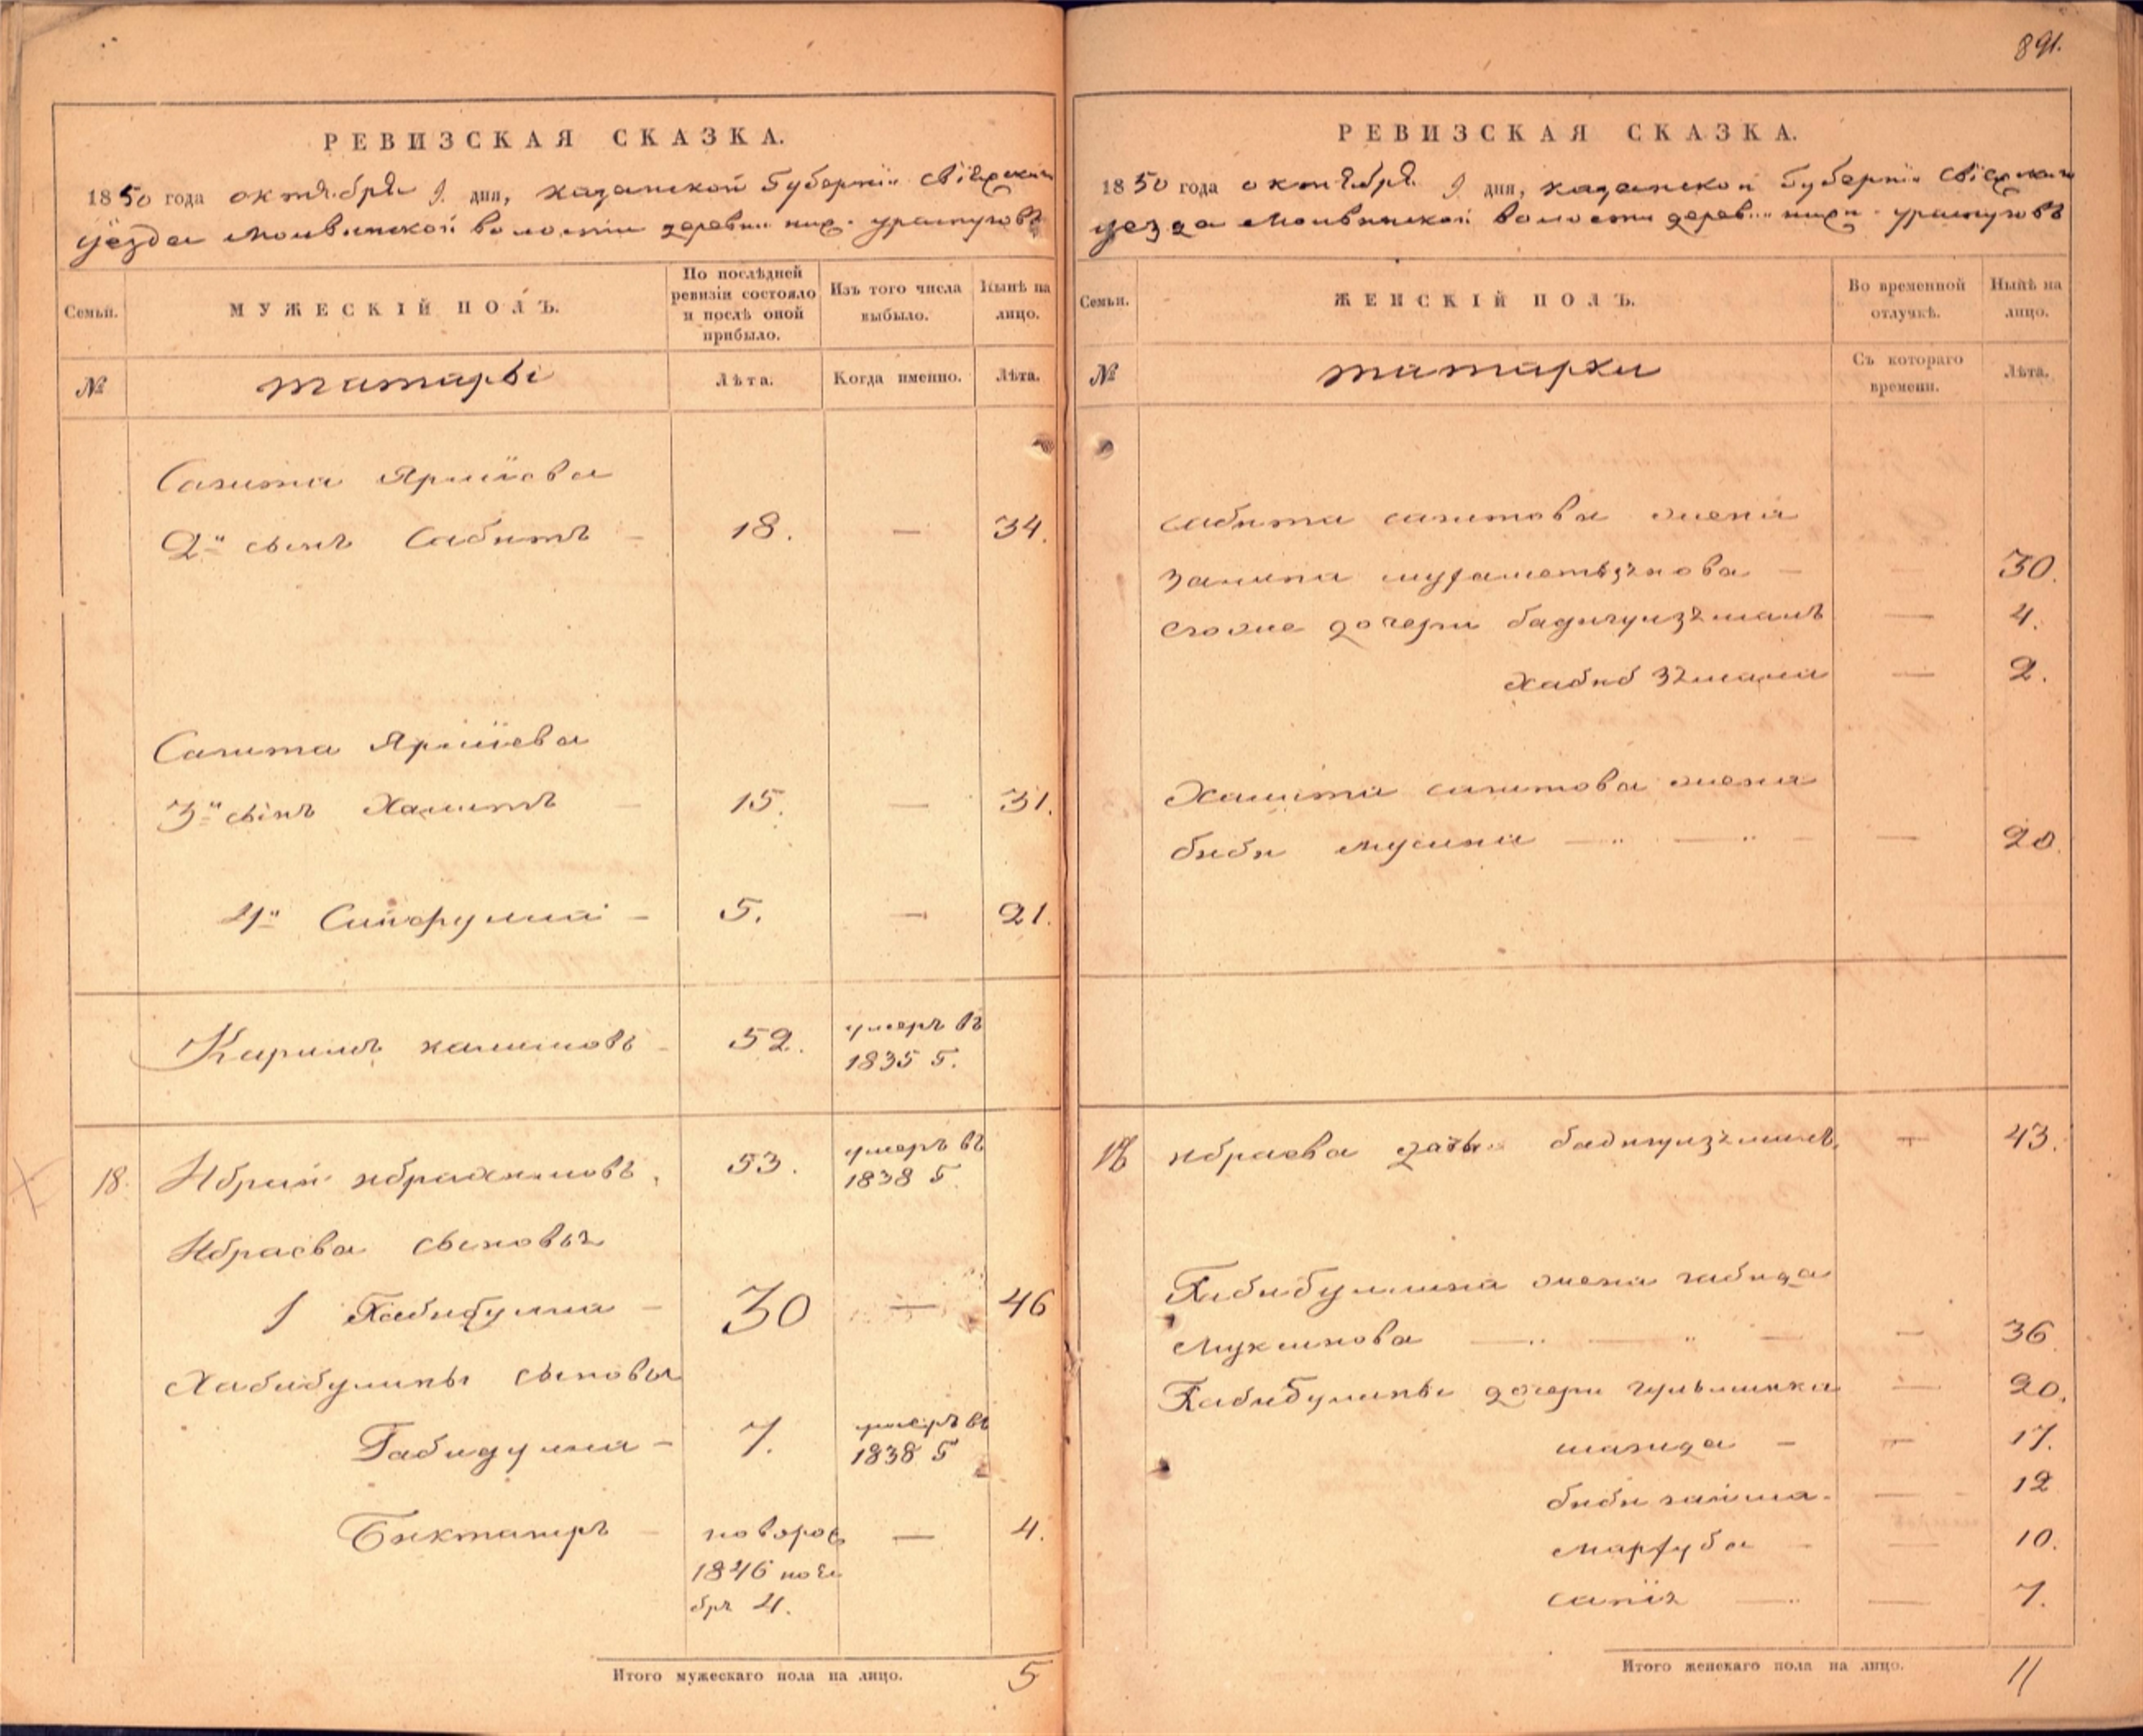 891.
РЕВИЗСКАЯ СКАЗКА.
1850 года октября 9 дня, казанской Губернiи свiяжскаго
уѣзда волости деревни ниж. уратусовъ
Семьи.
МУЖЕСКIЙ ПОЛЪ.
По послѣдней ревизiи состояло и послѣ оной прибыло.
Изъ того числа выбыло.
Нынѣ на лицо.
№
татары
Лѣта.
Когда именно.
Лѣта.
Сагита Ярмiева
2й сынъ Сабитъ – 18. — 34.
Сагита Ярмiева
3й сынъ Хамитъ – 15. — 31.
4й – 5. — 21.
Каримъ халитовъ – 52. умеръ въ
1835 г.
18. Ибрай ибрахимовъ. 53. умеръ въ
1838 г.
Ибраева сыновья
1 Хабибулла – 30 — 46
Хабибулины сыновья
Габидулла – 7. умеръ въ
1838 г
Бикташръ – новорож — 4.
1846 ноя
бря 4.
Итого мужескаго пола на лицо. 5
РЕВИЗСКАЯ СКАЗКА.
1850 года октября 9 дня, казанской Губернiи свiяжскаго
уезда волости деревни нижн. уратусовъ
Семьи.
ЖЕНСКIЙ ПОЛЪ.
Во временной отлучкѣ.
Нынѣ на лицо.
№
татарки
Съ котораго времени.
Лѣта.
сабита сагитова жена
– – 30.
его же дочери бадигулзъмалъ — 4.
хабиб зямала — 2.
Хамита сагитова жена
биби мусина — — — 20.
18 ибраева дочь бадигулзямалъ — 43.
Хабибуллина жена габида
Мукминова — — — 36
Хабибулины дочери — 20.
шагида – — 17.
биби – — 12
марфуба – — 10.
сапiя — — 7.
Итого женскаго пола на лицо. 11